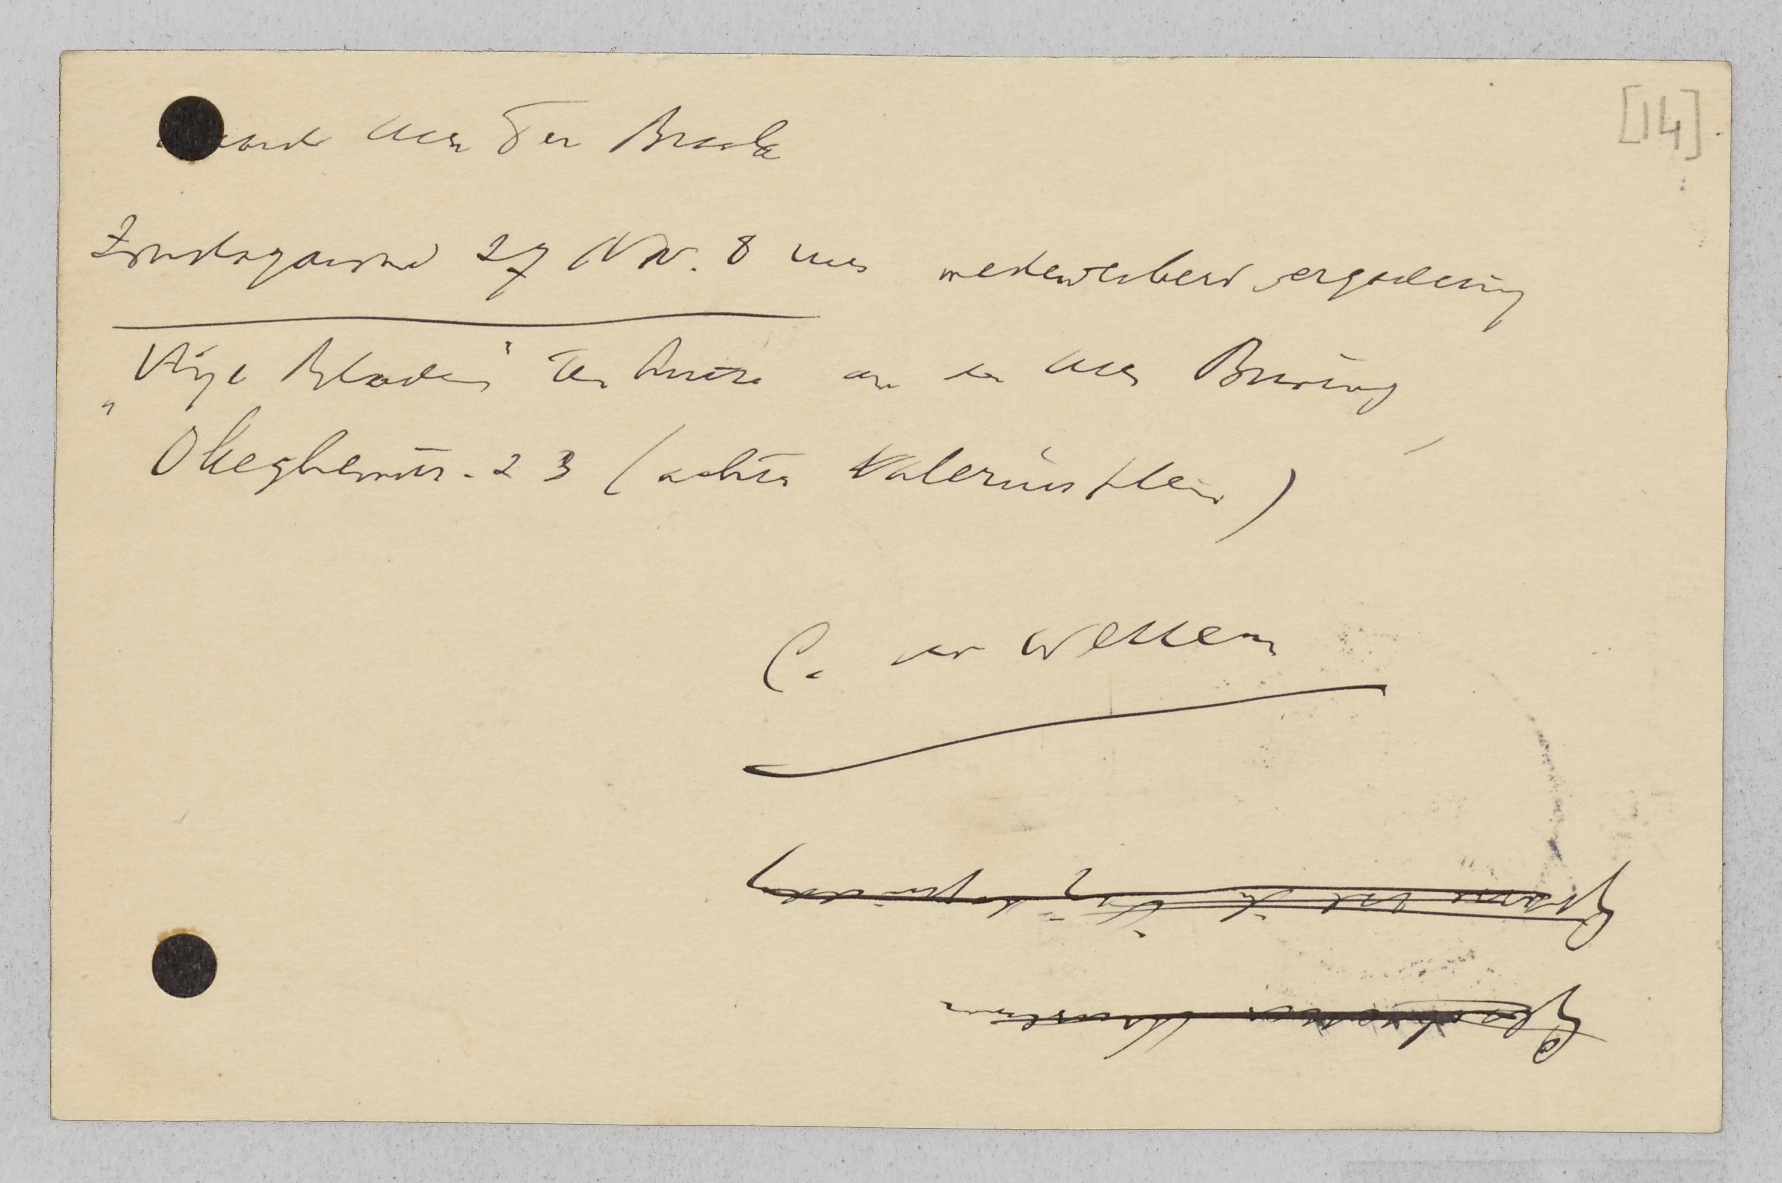 [14]
Waarde Heer Ter Braak
Zondagavond 27 Nov. 8 uur medewerkersvergadering
"Vrije Bladen" ten huize van den heer Buning,
Okeghemstr. 23 (achter Valeriusplein)
C. v. Wessem
Geachte